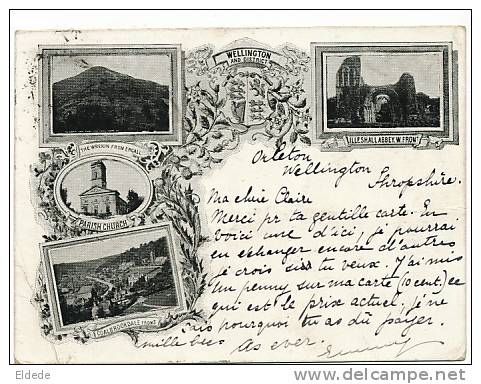 WELLINGTON
AND DISTRICT
THE WREKIN FROM ERCALL
LILLESHALL ABBEY. W. FRONT
PARISH CHURCH
COALBROOKDALE
Orleton
Wellington
Shropshire.
Ma chère Claire
Merci pr ta gentille carte. En
voici une d'ici, je pourrai
en échanger encore d'autres
je crois si tu veux. J'ai mis
un penny sur ma carte (10 cent.) ce
qui est le prix actuel. je ne
sais pourquoi tu as dû payer.
mille bises As ever.
Eldede
http://www.delcampe.net